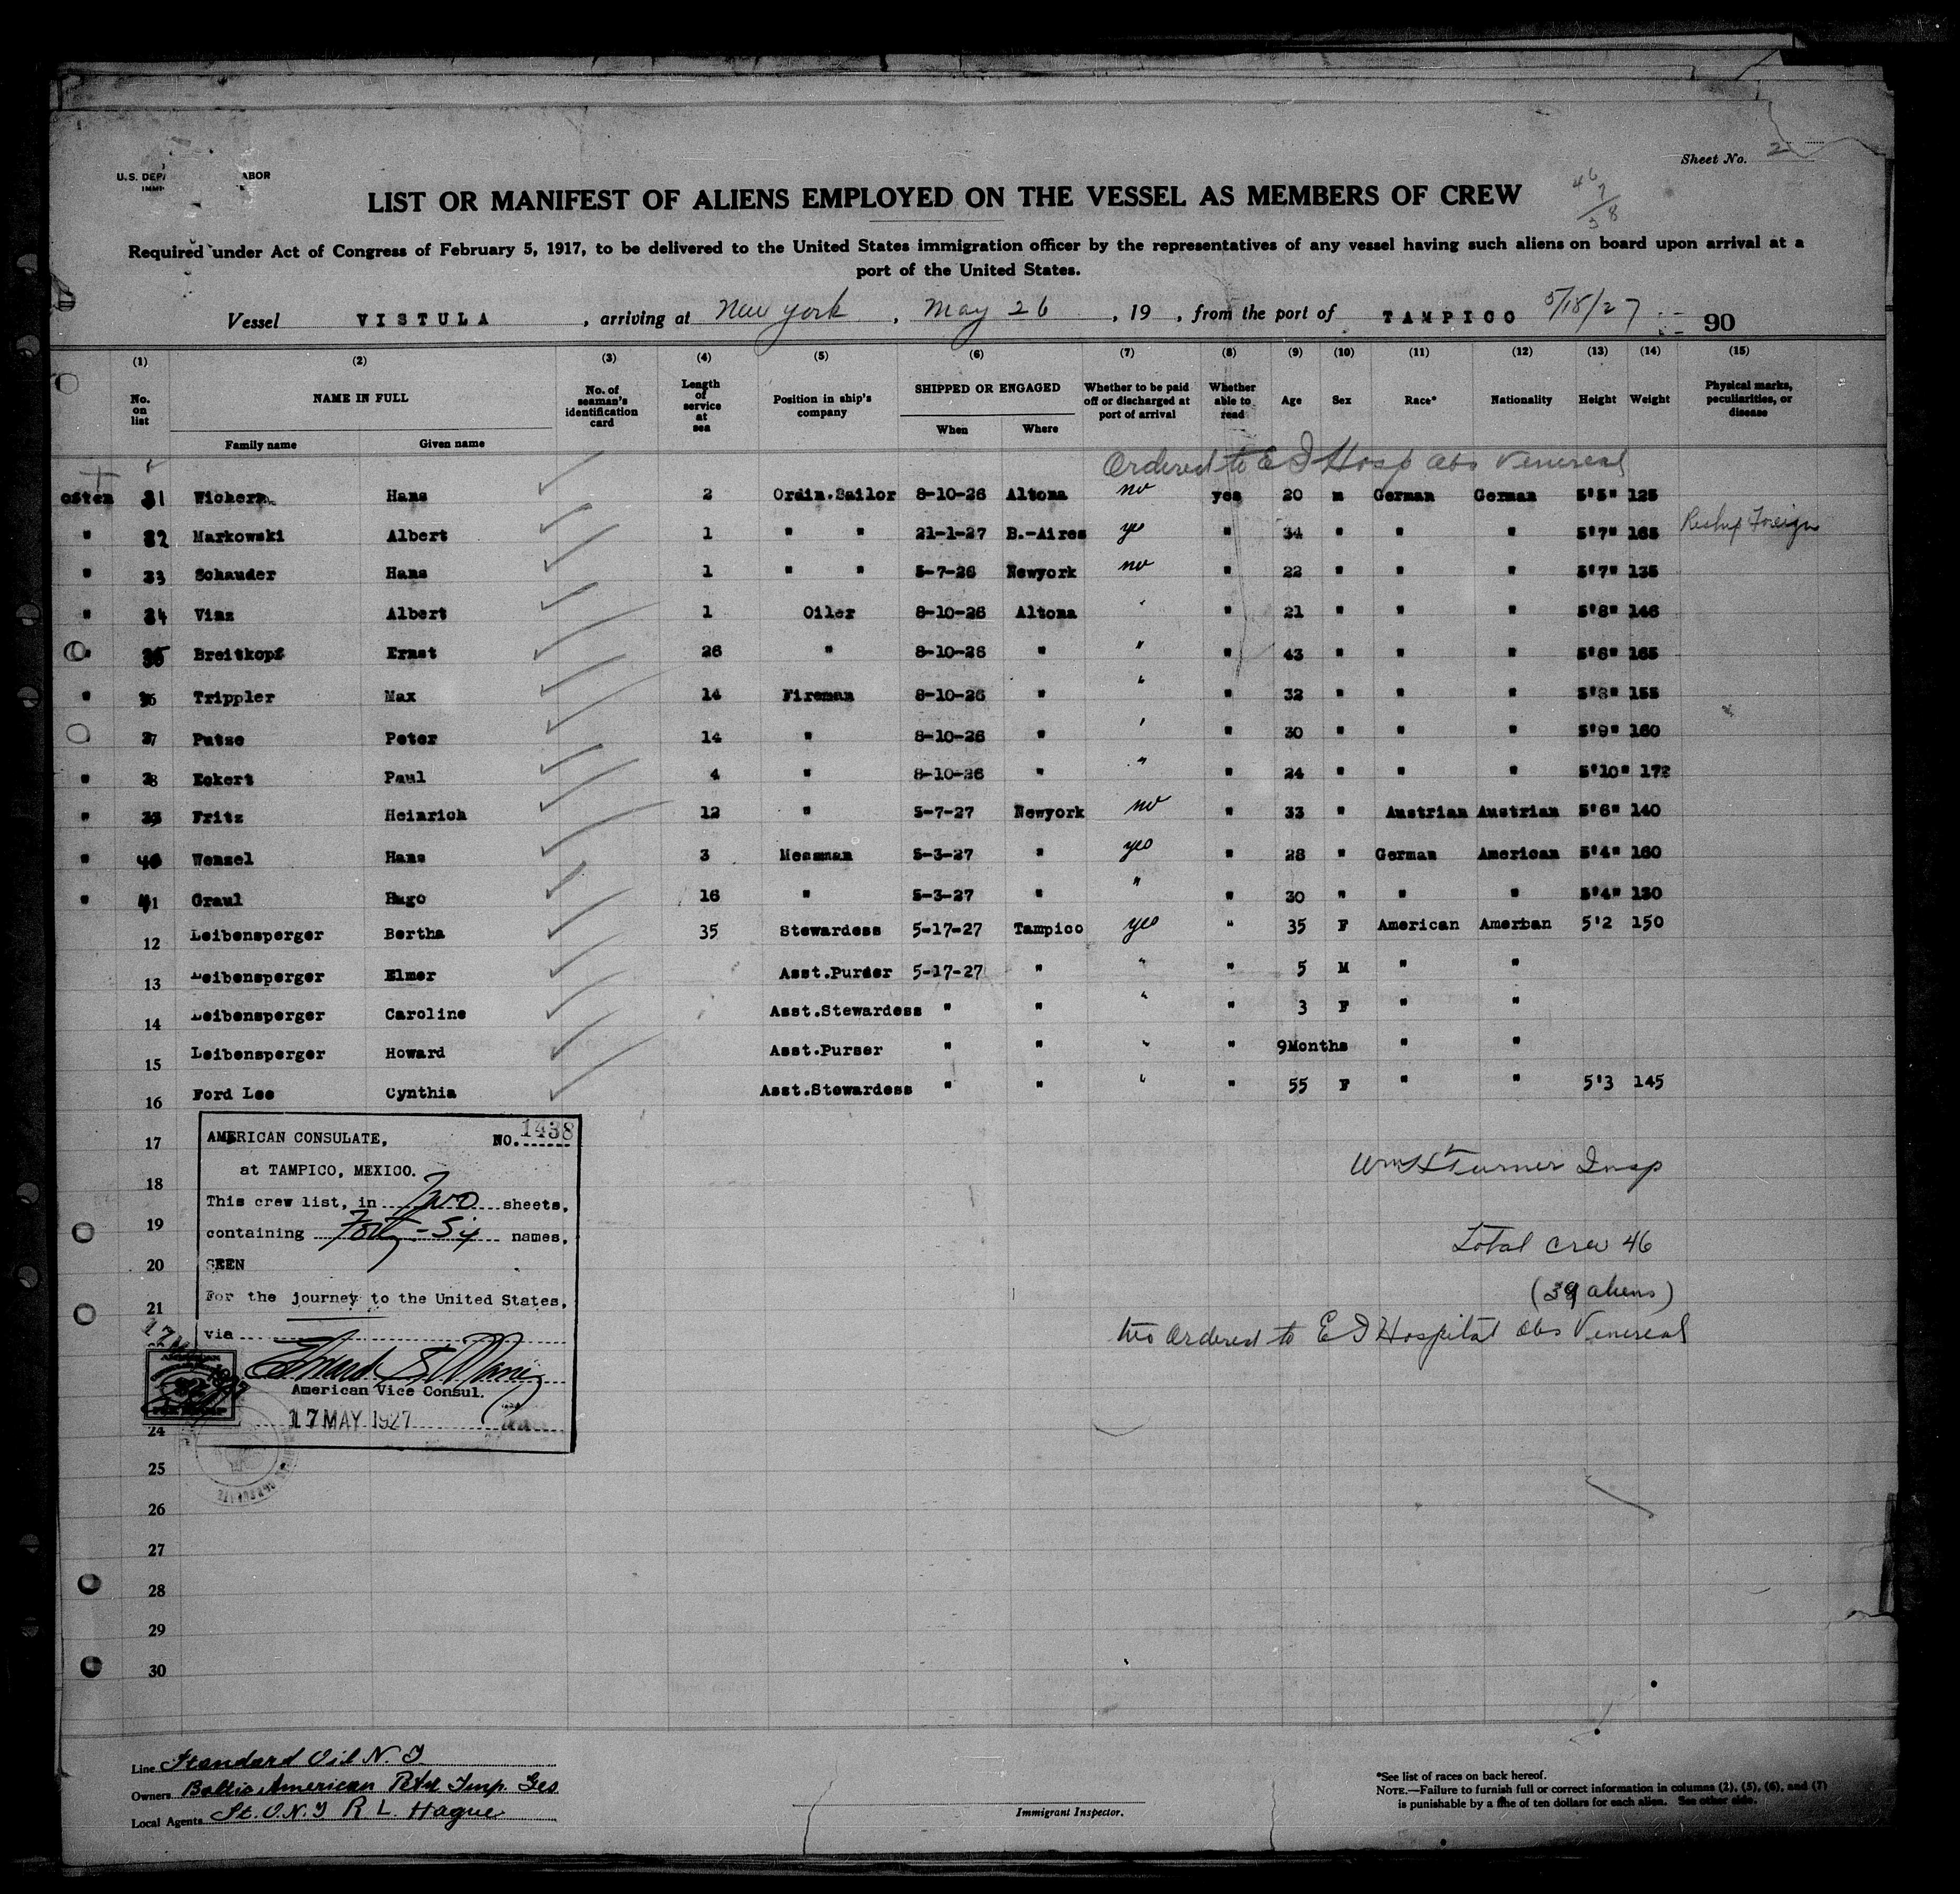 Sheet No. 2
U.S. DEPA ABOR
IMMI
LIST OR MANIFEST OF ALIENS EMPLOYED ON THE VESSEL AS MEMBERS OF CREW
46
7
38
Required under Act of Congress of February 5, 1917, to be delivered to the United States immigration officer by the representatives of any vessel having such aliens on board upon arrival at a
port of the United States.
Vessel VISTULA , arriving at New York , May 26 , 19 , from the port of TAMPICO 5/18/27 90
(1) (2) (3) (4) (5) (6) (7) (8) (9) (10) (11) (12) (13) (14) (15)
No. on list NAME IN FULL Family name Given name No. of seaman's identification card Length of service at sea Position in ship's company SHIPPED OR ENGAGED When Where Whether to be paid off or discharged at port of arrival Whether able to read Age Sex Race* Nationality Height Weight Physical marks, peculiarities, or disease
Ordered to E I Hosp obs Venereal
osten 31 Wichern Hans 2 Ordin.Sailor 8-10-26 Altona no yes 20 m German German 5'5" 125
" 32 Markowski Albert 1 " " 21-1-27 B.-Aires yes " 34 " " " 5'7" 165 Reship Foreign
" 33 Schauder Hans 1 " " 5-7-26 Newyork no " 22 " " " 5'7" 135
" 34 Vinz Albert 1 Oiler 8-10-26 Altona " " 21 " " " 5'8" 146
" 35 Breitkopf Ernst 26 " 8-10-26 " " " 43 " " " 5'6" 165
" 36 Trippler Max 14 Fireman 8-10-26 " " " 32 " " " 5'8" 155
37 Putse Peter 14 " 8-10-26 " " " 30 " " " 5'9" 160
" 38 Eckert Paul 4 " 8-10-26 " " " 24 " " " 5'10" 172
" 39 Fritz Heinrich 12 " 5-7-27 Newyork no " 33 " Austrian Austrian 5'6" 140
" 40 Wenzel Hans 3 Messman 5-3-27 " yes " 28 " German American 5'4" 160
" 41 Graul Hugo 16 " 5-3-27 " " " 30 " " " 5'4" 130
12 Leibensperger Bertha 35 Stewardess 5-17-27 Tampico yes " 35 F American Amerban 5'2 150
13 Leibensperger Elmer Asst.Purser 5-17-27 " " " 5 M " "
14 Leibensperger Caroline Asst.Stewardess " " " " 3 F " "
15 Leibensperger Howard Asst.Purser " " " " 9Months " "
16 Ford Lee Cynthia Asst.Stewardess " " " " 55 F " " 5'3 145
17
18
19
20
21
24
25
26
27
28
29
30
AMERICAN CONSULATE, NO. 1438
at TAMPICO, MEXICO.
This crew list, in Two sheets,
containing Forty-Six names,
SEEN
For the journey to the United States,
via
American Vice Consul.
17 MAY 1927
Wm H Turner Insp
Total crew 46
(39 aliens)
two Ordered to E I Hospital obs Venereal
Line Standard Oil N.J
Owners Baltic American Petrl Imp. Ges
Local Agents St.O.N.J R L. Hague
Immigrant Inspector.
*See list of races on back hereof.
NOTE.—Failure to furnish full or correct information in columns (2), (5), (6), and (7)
is punishable by a fine of ten dollars for each alien. See other side.